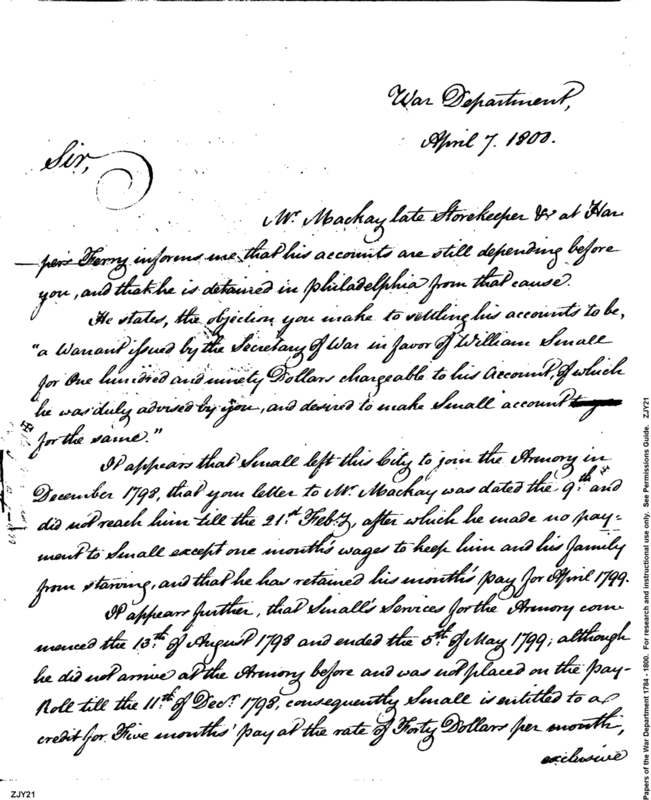 War Department,
April 7. 1800.
Sir,
Mr. Mackay late Storekeeper &c at Har
pers Ferry informs me that his accounts are still depending before
you, and that he is detained in Philadelphia from that cause.
He states, the objection you make to settling his accounts to be,
"a Warrant issued by the Secretary of War in favor of William Small
for One hundred and ninety Dollars chargeable to his Account, of which
he was duly advised by you, and desired to make Small account
for the same."
It appears that Small left this City to join the Armory in
December 1798, that your letter to Mr. Mackay was dated the 9th. and
did not reach him till the 21st. Feby, after which he made no pay-
ment to Small except one month's wages to keep him and his family
from starving, and that he has retained his month's pay for April 1799.
It appears further, that Small's Services for the Armory com
menced the 13th. of August 1798 and ended the 5th. of May 1799; although
he did not arrive at the Armory before and was not placed on the Pay-
Roll till the 11th. of Decr. 1798, consequently Small is entitled to a
credit for Five months' pay at the rate of Forty Dollars per month,
exclusive
ZJY21
Papers of the War Department 1784 - 1800. For research and instructional use only. See Permissions Guide. ZJY21